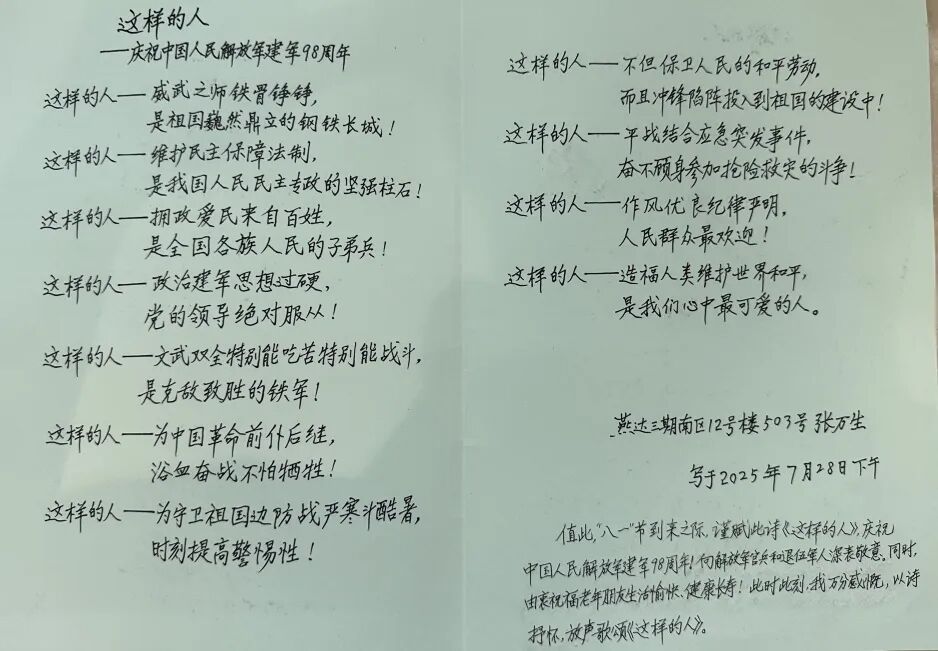 这样的人
——庆祝中国人民解放军建军98周年
这样的人——威武之师铁骨铮铮,
是祖国巍然鼎立的钢铁长城!
这样的人——维护民主保障法制,
是我国人民民主专政的坚强柱石!
这样的人——拥政爱民来自百姓,
是全国各族人民的子弟兵!
这样的人——政治建军思想过硬,
党的领导绝对服从!
这样的人——文武双全特别能吃苦特别能战斗,
是克敌致胜的铁军!
这样的人——为中国革命前仆后继,
浴血奋战不怕牺牲!
这样的人——为守卫祖国边防战严寒斗酷暑,
时刻提高警惕性!
这样的人——不但保卫人民的和平劳动,
而且冲锋陷阵投入到祖国的建设中!
这样的人——平战结合应急突发事件,
奋不顾身参加抢险救灾的斗争!
这样的人——作风优良纪律严明,
人民群众最欢迎!
这样的人——造福人类维护世界和平,
是我们心中最可爱的人。
燕达三期南区12号楼503号 张万生
写于2025年7月28日下午
值此“八一”节到来之际,谨赋此诗《这样的人》,庆祝
中国人民解放军建军98周年!向解放军官兵和退伍军人深表敬意。同时,
由衷祝福老年朋友生活愉快、健康长寿!此时此刻,我万分感慨,以诗
抒怀,放声歌颂《这样的人》。